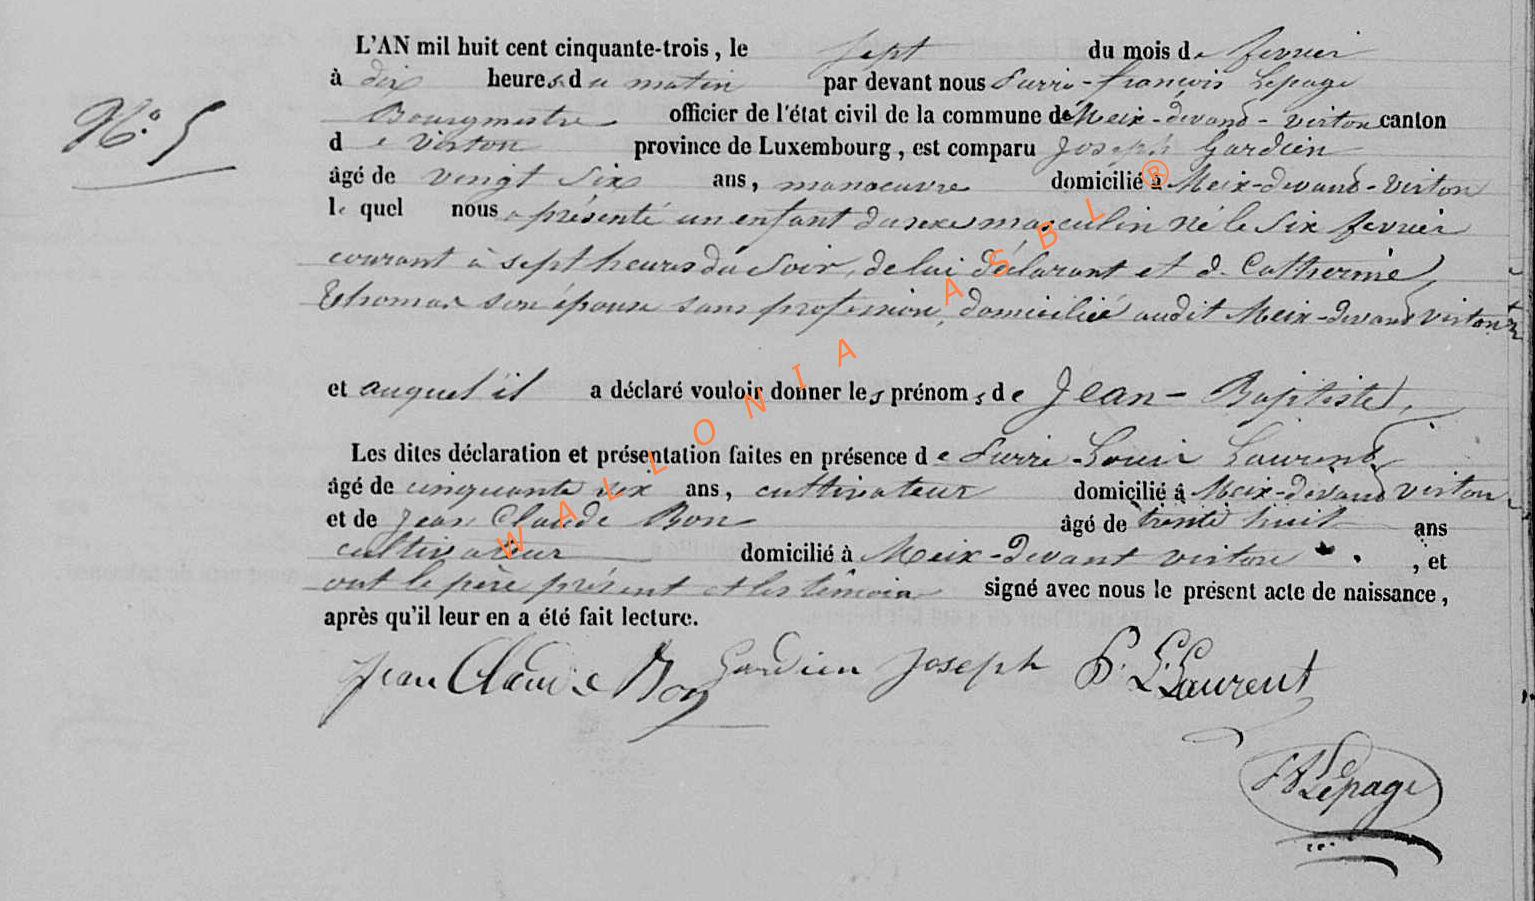 L'AN mil huit cent cinquante-trois, le sept du mois de fevrier
à dix heures du matin par devant nous Pierre-françois Lepage
Bourgmestre officier de l'état civil de la commune de Meix-devant-virton canton
de Virton province de Luxembourg, est comparu Joseph Gardien
N.o 5
âgé de vingt six ans, manoeuvre domicilié à Meix-devant-virton
le quel nous a présenté un enfant du sexe masculin né le Six fevrier
courant à sept heures du Soir, de lui déclarant et d. Catherine
Thomas son épouse sans profession, domicilié audit Meix-devant virton
et auquel il a déclaré vouloir donner les prénoms de Jean-Baptiste,
Les dites déclaration et présentation faites en présence de Pierre-Louis Laurent
âgé de cinquante six ans, cultivateur domicilié à Meix-devant virton
et de Jean Claude Bon âgé de trente huit ans
cultivateur domicilié à Meix-devant virton, et
ont le père présent et les témoin signé avec nous le présent acte de naissance,
après qu'il leur en a été fait lecture.
Jean Claude Bon Gardien Joseph P. L. Laurent
Lepage
WALLONIA ASBL ®